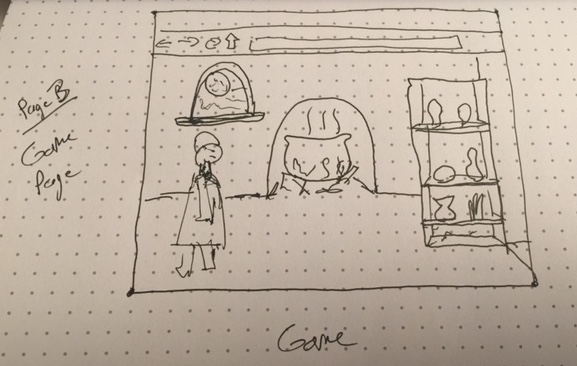 Page B
Game
Page
Game